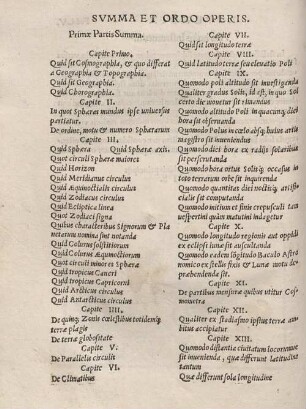 SVMMA ET ORDO OPERIS.
Primæ Partis Summa.
Capite Primo.
Quid sit Cosmographia, & quo differat
a Geographia & Topographia.
Quid sit Geographia.
Quid Chorographia.
Capite II.
In quot Sphæras mundus ipse vniuersus
partiatur.
De ordine, motu & numero Sphærarum
Capite III.
Quid Sphæra Quid Sphæræ axis.
Quot circuli Sphæræ maiores
Quid Horizon
Quid Meridianus circulus
Quid Aequinoctialis circulus
Quid Zodiacus circulus
Quid Ecliptica linea
Quot Zodiaci signa
Quibus characteribus Signorum & Pla
netarum nomina sint notanda
Quid Colurus solstitiorum
Quid Colurus Aequinoctiorum
Quot circuli minores Sphæræ
Quid tropicus Cancri
Quid tropicus Capricorni
Quid Arcticus circulus
Quid Antarcticus circulus
Capite IIII.
De quinque Zonis cœlestibus totidemque
terræ plagis
De terræ globositate
Capite V.
De Parallelis circulis
Capite VI.
De Climatibus
Capite VII.
Quid sit longitudo terræ
Capite VIII.
Quid latitudo terræ seu eleuatio Poli
Capite IX.
Quomodo poli altitudo sit inuestiganda
Qualiter gradus Solis, id est, in quo Sol
certo die mouetur sit examinandus
Quomodo altitudo Poli in quacunque diei
hora sit obseruanda
Quomodo Polus in cœlo absque huius artis
magistro sit inueniendus
Quomodo diei hora ex radijs solaribus
sit perscrutanda
Quomodo hora ortus Solis & occasus in
toto terrarum orbe sit indaganda
Quomodo quantitas diei noctisque artifici
aliter sit computanda
Quomodo initium et finis crepusculi tam
vespertini quàm matutini indagetur
Capite X.
Quomodo longitudo regionis aut oppidi
ex eclipsi lunæ sit auscultanda
Quomodo eadem longitudo Baculo Astro
nomico ex stellis fixis & Lunæ motu de
prehendenda sit.
Capite XI.
De partibus mensuræ quibus vtitur Cos
mometra
Capite XII.
Qualiter ex stadiasmo ipsius terræ am
bitus accipiatur
Capite XIII.
Quomodo distantia ciuitatum locorumue
sit inuenienda, quæ differunt latitudine
tantum
Quæ differunt sola longitudine